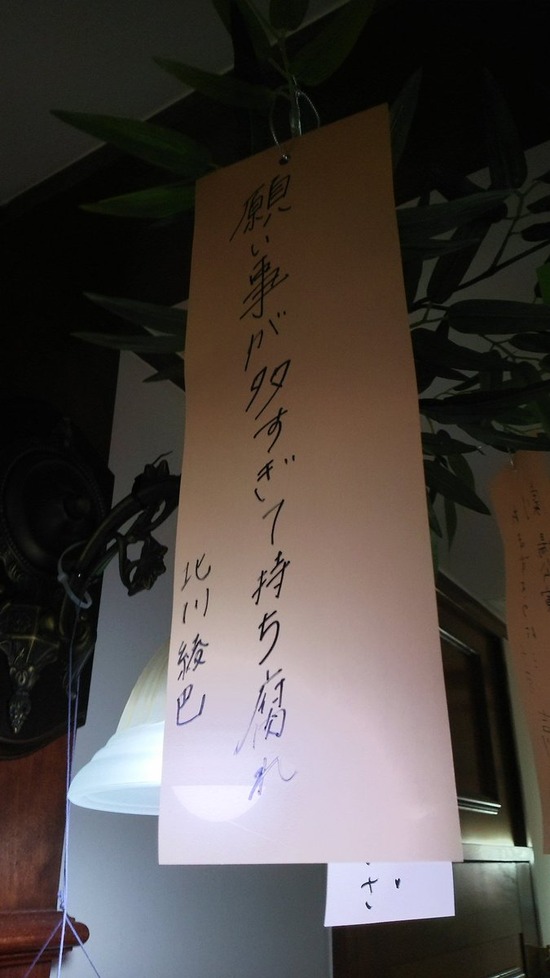 願い事が多すぎて持ち腐れ
北川綾巴
さ